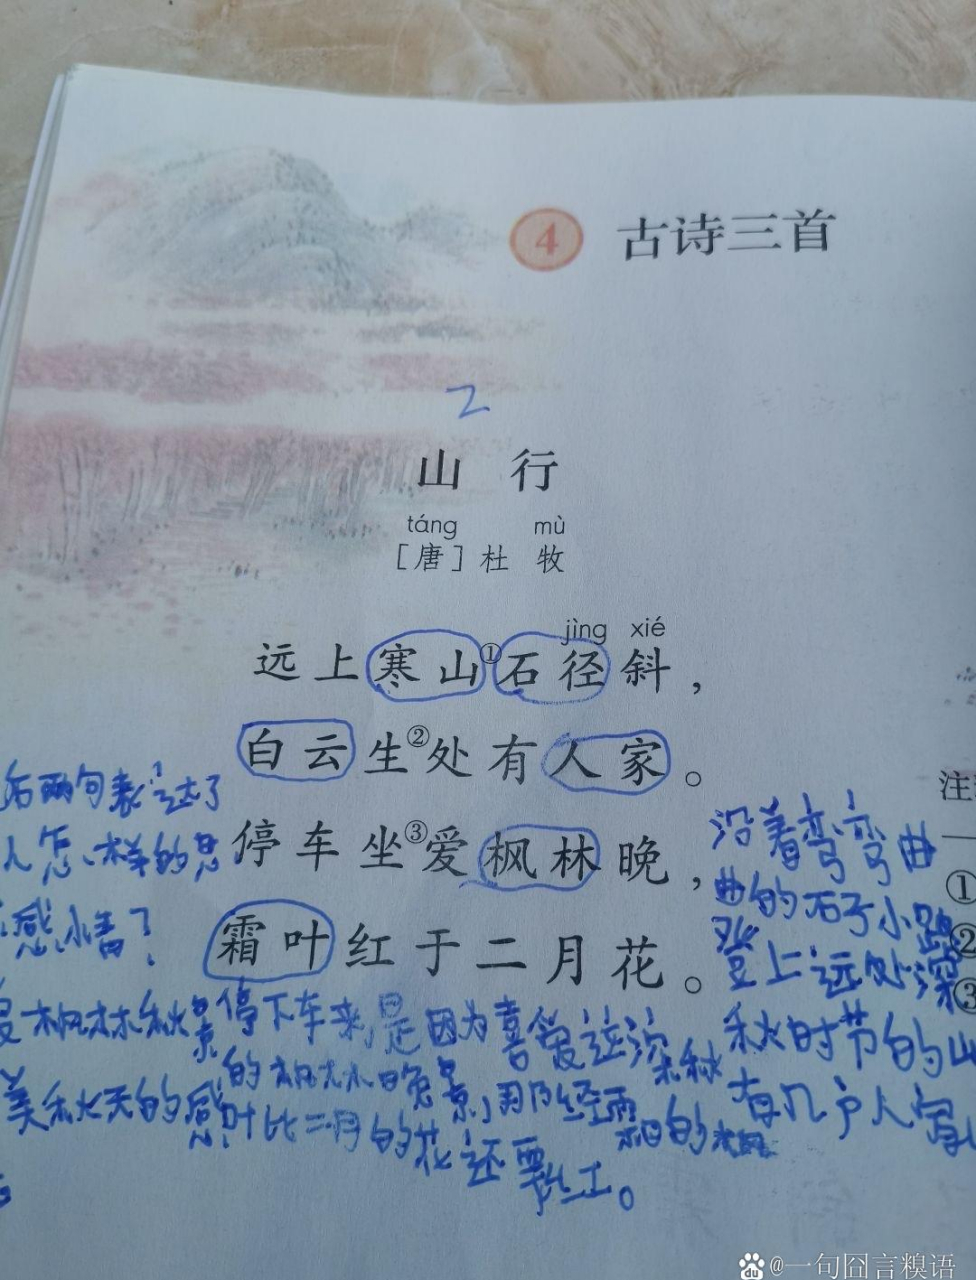 4 古诗三首
2
山 行
táng mù
[唐]杜 牧
jìng xié
远上寒山①石径斜，
白云生②处有人家。
停车坐③爱枫林晚，
霜叶红于二月花。
后两句表达了
人怎样的思
感情？
枫林秋景
美秋天的感
沿着弯弯曲
曲的石子小路
登上远处深
秋时节的山
有几户人家
停下车来，是因为喜爱这深秋
的枫林晚景，那经霜的
叶比二月的花还要红。
注
①
②
③
du @一句囧言糗语